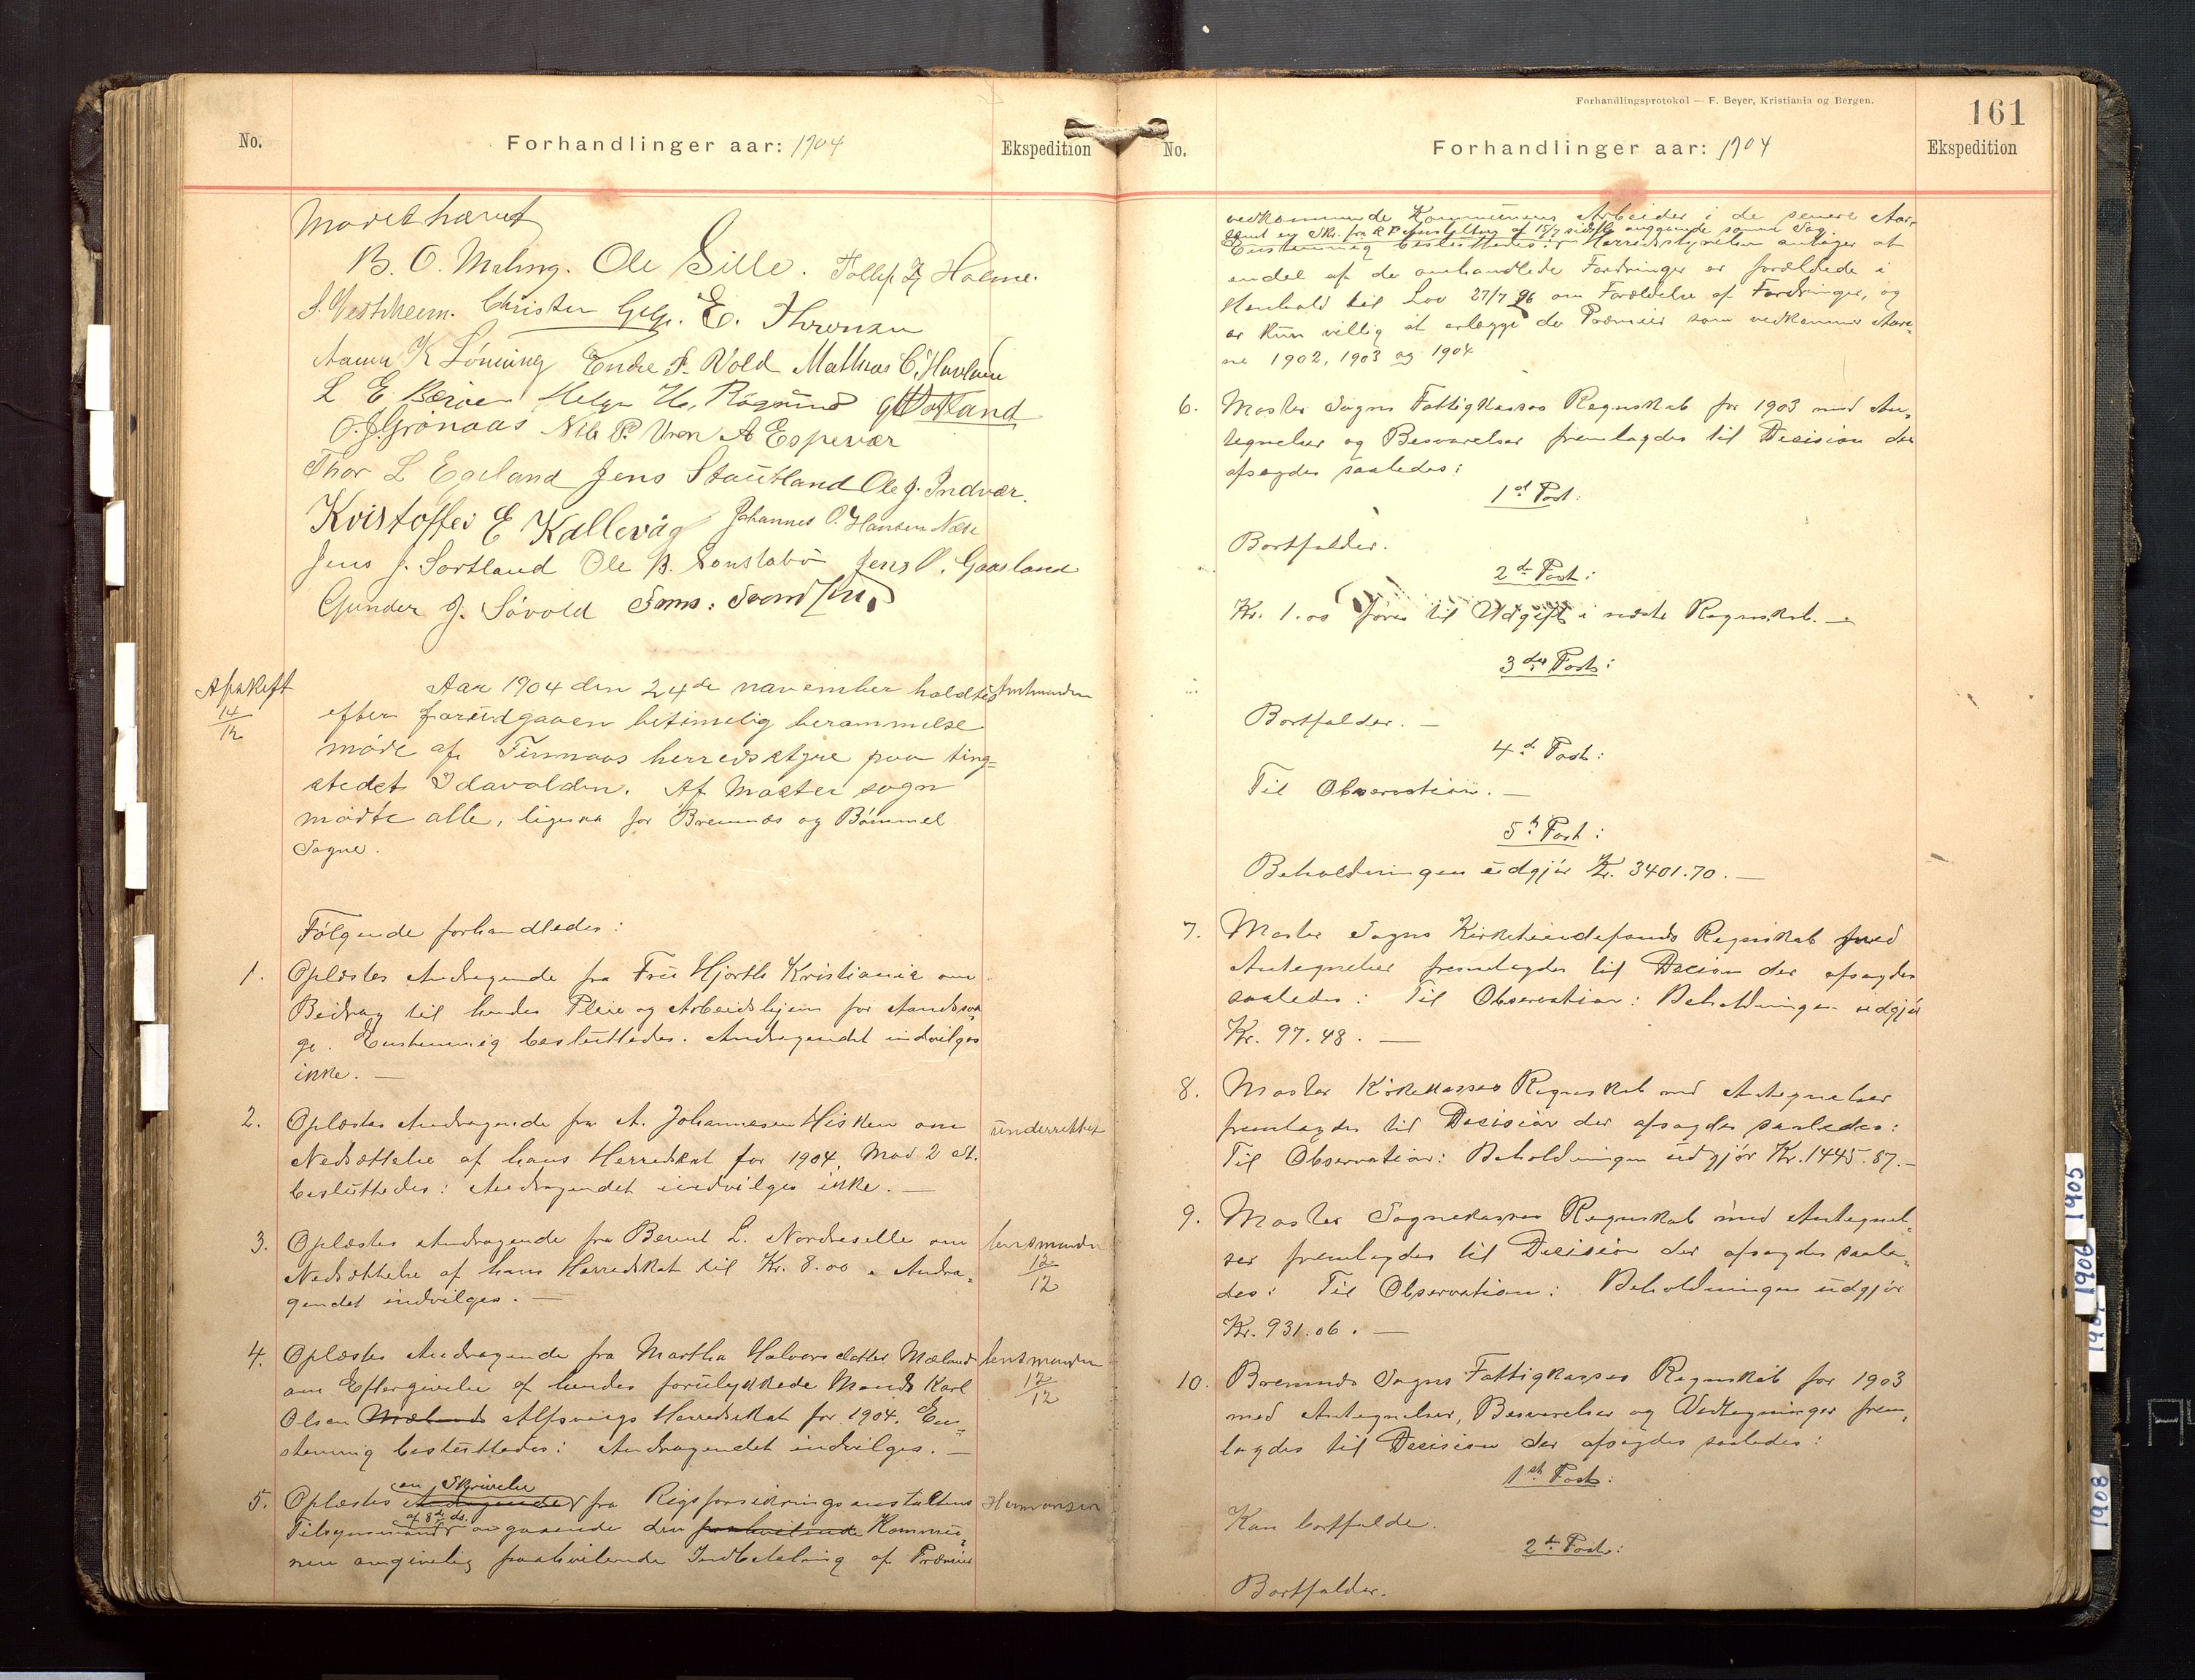 No.
Forhandlinger aar: 1904
Ekspedition
Mødet hævet
B. O. Meling. Ole Sille. Tollef Z Holme.
S. Vestvheim. Christen Gjelp. E. Thorensen
Aamu K Lønning Endre P. Vold Mathias C. Havlsen
L E Børøen Helge H. Røgnsund
O. J. Grønaas Nils P. Vren A Espevær
Thor L Egeland Jens Stautland Ole J. Indvær.
Kristoffer E Kallevåg Johannes O. Hansen Næse
Jens J. Sortland Ole B. Sonstabø Jens O. Gaasland
Gunder J. Søvold Sams: Svendsen
Afskrift
14/12
Aar 1904 den 24de november holdtes Amtmanden
efter forudgaaen betimelig berammelse
møde af Finnaas herredsstyre paa ting=
stedet Idavolden. Af Moster sogn
mødte alle, ligesaa for Bremnes og Bømmel
Sogne.
Følgende forhandledes:
1. Oplæstes Andragende fra Fru Hjorth Kristiania om
Bidrag til hendes Pleie og Arbeidshjem for Aandssva-
ge. Enstemmig besluttedes. Andragendet indvilges
ikke. —
2. Oplæstes Andragende fra A. Johannesen Hisken om underrettet
Nedsættelse af hans Herredskat for 1904. Mod 2 St.
besluttedes: Andragendet indvilges ikke. —
3. Oplæstes Andragende fra Berent L. Nordreselle om lensmanden
Nedsættelse af hans Herredskat til Kr. 8.00. Andra= 12/12
gendet indvilges. —
4. Oplæstes Andragende fra Martha Halvorsdatter Mæland lensmanden
om Eftergivelse af hendes forulykkede Mands Karl 12/12
Olsen Mælands Alfsvaags Herredsskat for 1904. En=
stemmig besluttedes: Andragendet indvilges. —
en Skrivelse
5. Oplæstes Andragende fra Rigsforsikringsanstaltens Hermansen
af 8de ds.
Tilsynsmand angaaende den paahvilende Kommu-
nen angivelig paahvilende Indbetaling af Præmier
Forhandlingsprotokol — F. Beyer, Kristiania og Bergen.
161
No.
Forhandlinger aar: 1904
Ekspedition
vedkommende Kommunens Arbeider i de senere Aar,
samt en Skr. fra R F anstaltens af 15/7 sidstl. angaaende samme Sag.
Enstemmig besluttedes: Herredsstyrelsen antager at
endel af de omhandlede Fordringer er forældede i
Henhold til Lov 27/7 96 om Forældelse af Fordringer, og
er kun villig at erlægge de Præmier som vedkommer Aare-
ne 1902, 1903 og 1904
6. Moster Sogns Fattigkasses Regnskab for 1903 med An-
tegnelser og Besvarelser fremlagdes til Decision der
afsagdes saaledes:
1ste Post:
Bortfalder.
2de Post:
Kr. 1.00 føres til Udgift i næste Regnskab. —
3die Post:
Bortfalder. —
4de Post:
Til Observation. —
5te Post:
Beholdningen udgjør Kr. 3401.70. —
7. Moster Sogns Kirketiendefonds Regnskab med
Antegnelser fremlagdes til Decion der afsagdes
saaledes: Til Observation: Beholdningen udgjør
Kr. 97.48. —
8. Moster Kirkekasses Regnskab med Antegnelser
fremlagdes til Decision der afsagdes saaledes:
Til Observation: Beholdningen udgjør Kr. 1445.87. —
9. Moster Sognekasses Regnskab med Antegnel-
ser fremlagdes til Decision der afsagdes saale-
des: Til Observation: Beholdningen udgjør
Kr. 931.06. —
10. Bremnes Sogns Fattigkasses Regnskab for 1903
med Antegnelser, Besvarelser og Vedtegninger frem-
lagdes til Decision der afsagdes saaledes:
1ste Post:
Kan bortfalde.
2de Post:
Bortfalder.
1905
1906
1908